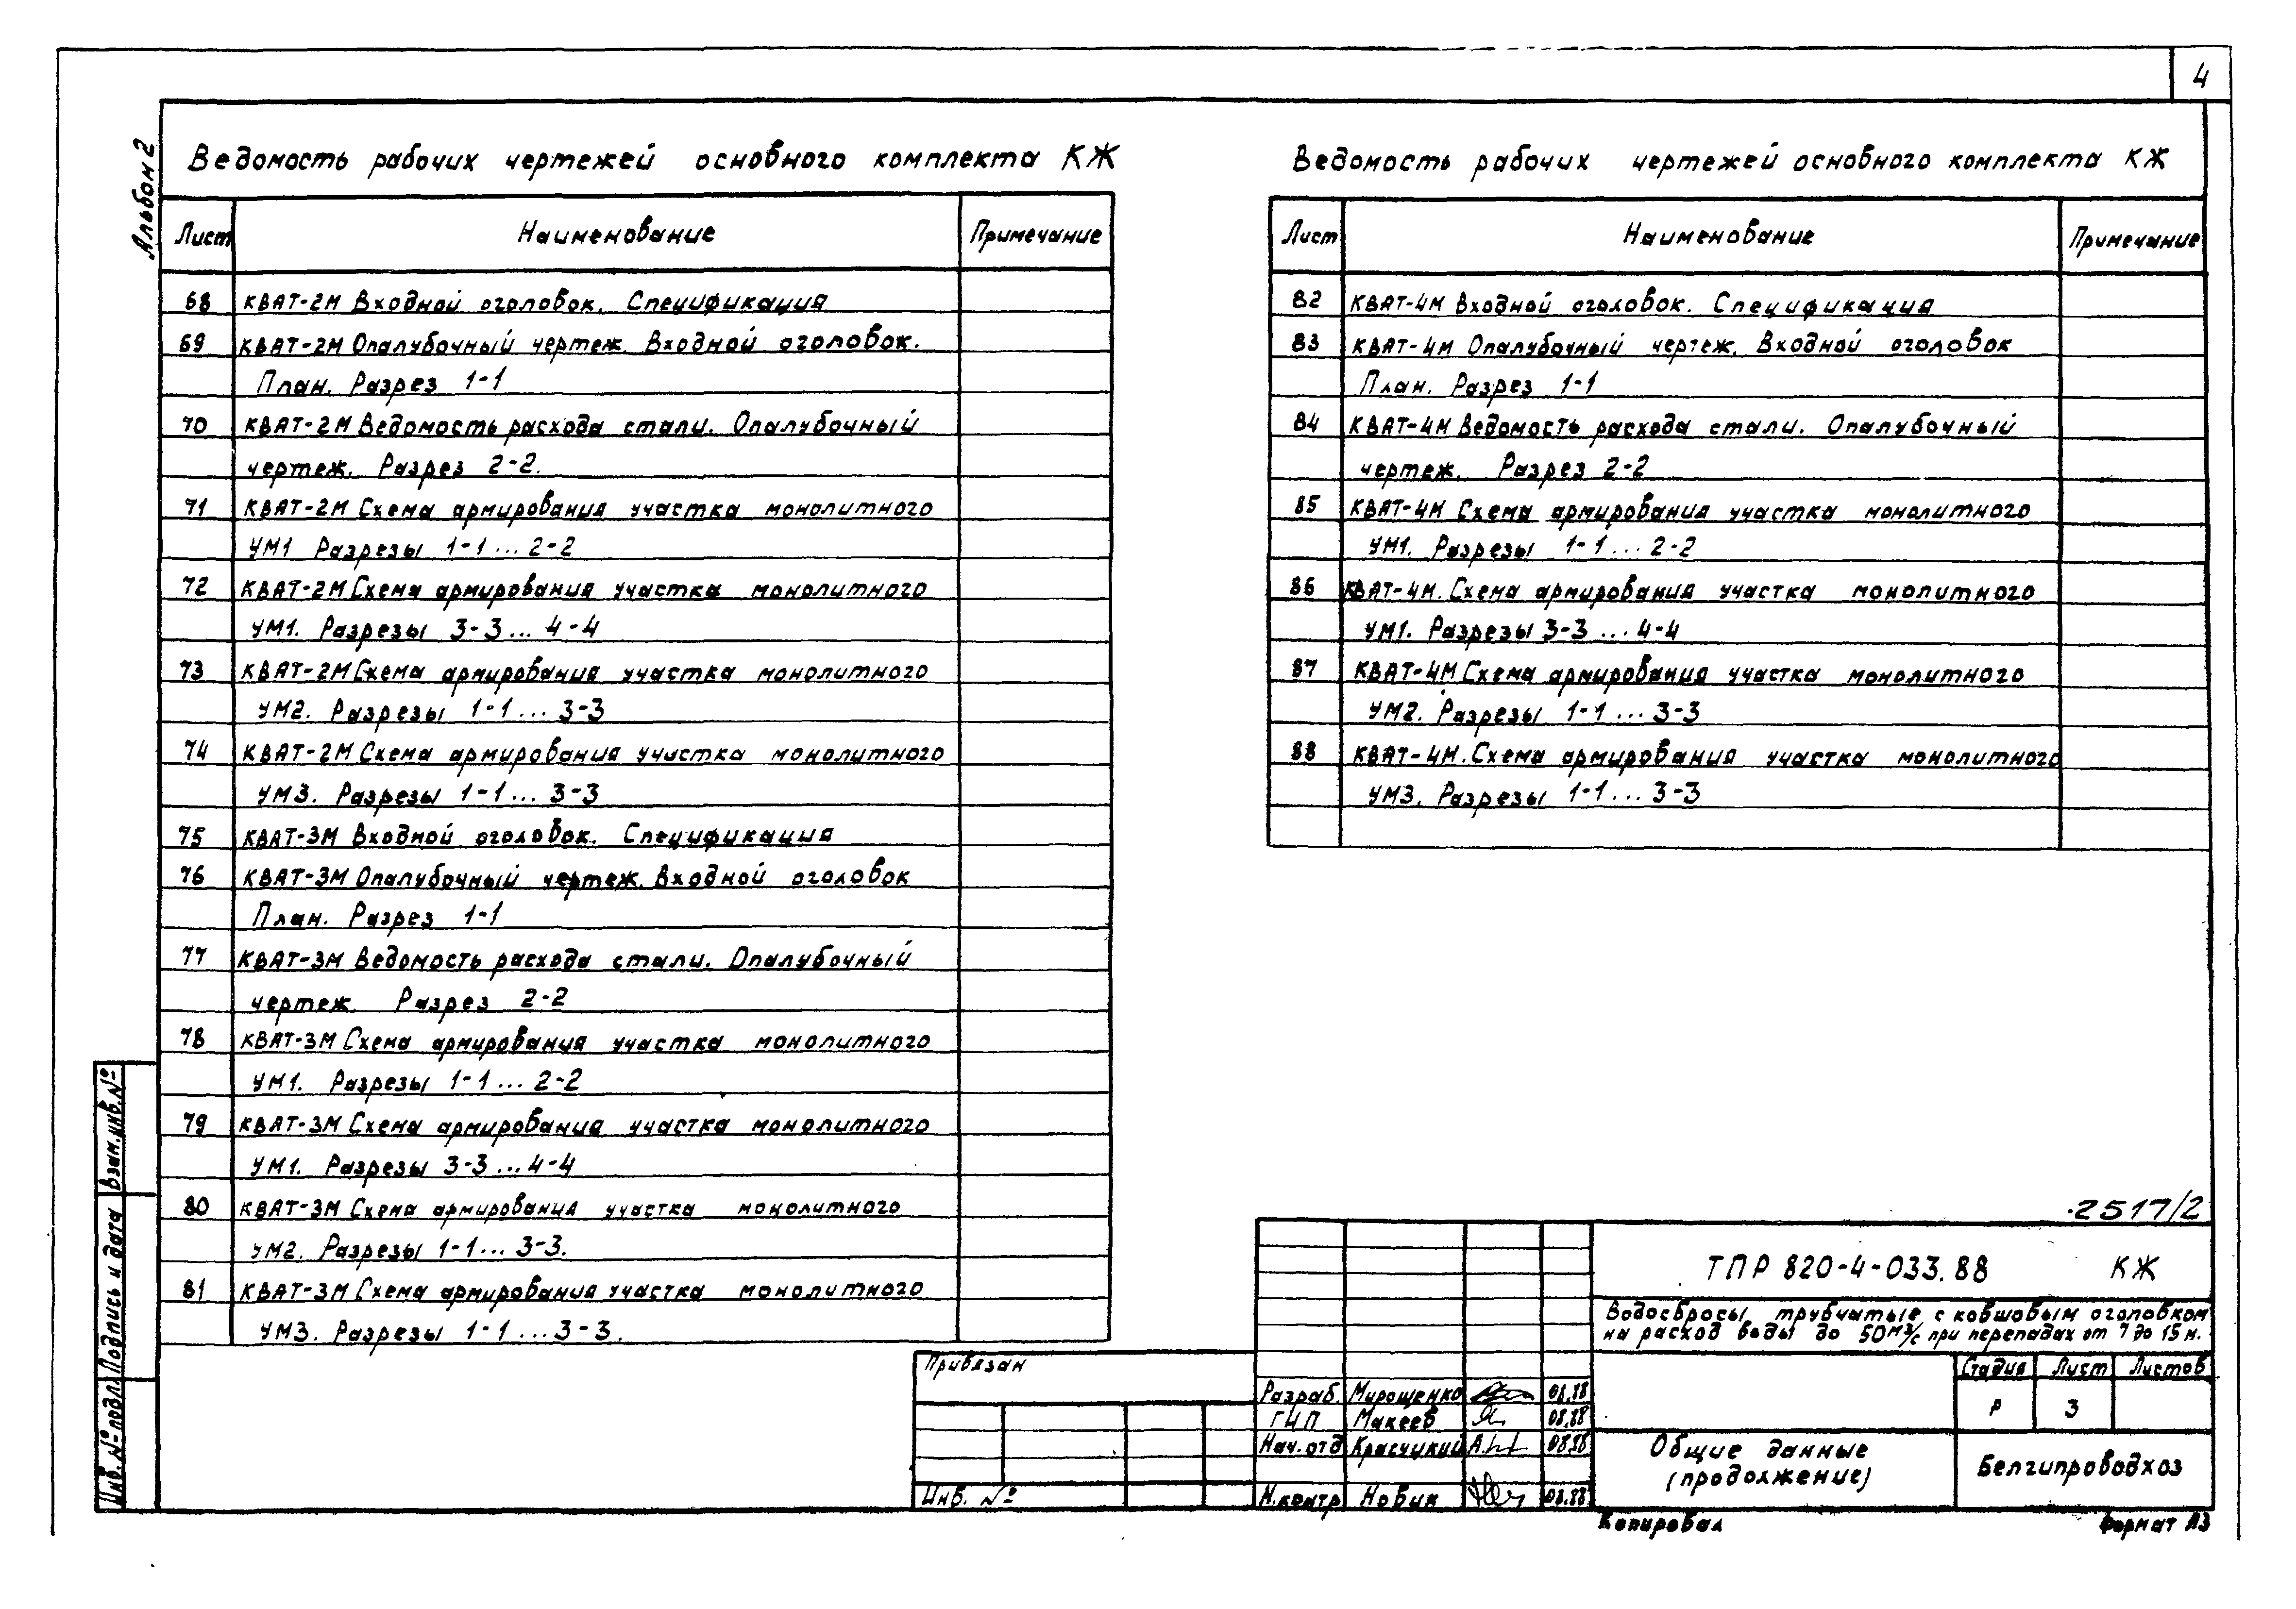 4
Альбом 2
Ведомость рабочих чертежей основного комплекта КЖ
Лист Наименование Примечание
68 КВАТ-2М Входной оголовок. Спецификация
69 КВАТ-2М Опалубочный чертеж. Входной оголовок.
План. Разрез 1-1
70 КВАТ-2М Ведомость расхода стали. Опалубочный
чертеж. Разрез 2-2.
71 КВАТ-2М Схема армирования участка монолитного
УМ1 Разрезы 1-1...2-2
72 КВАТ-2М Схема армирования участка монолитного
УМ1. Разрезы 3-3...4-4
73 КВАТ-2М Схема армирования участка монолитного
УМ2. Разрезы 1-1...3-3
74 КВАТ-2М Схема армирования участка монолитного
УМ3. Разрезы 1-1...3-3
75 КВАТ-3М Входной оголовок. Спецификация
76 КВАТ-3М Опалубочный чертеж. Входной оголовок
План. Разрез 1-1
77 КВАТ-3М Ведомость расхода стали. Опалубочный
чертеж. Разрез 2-2
78 КВАТ-3М Схема армирования участка монолитного
УМ1. Разрезы 1-1...2-2
79 КВАТ-3М Схема армирования участка монолитного
УМ1. Разрезы 3-3...4-4
80 КВАТ-3М Схема армирования участка монолитного
УМ2. Разрезы 1-1...3-3.
81 КВАТ-3М Схема армирования участка монолитного
УМ3. Разрезы 1-1...3-3.
Ведомость рабочих чертежей основного комплекта КЖ
Лист Наименование Примечание
82 КВАТ-4М Входной оголовок. Спецификация
83 КВАТ-4М Опалубочный чертеж. Входной оголовок
План. Разрез 1-1
84 КВАТ-4М Ведомость расхода стали. Опалубочный
чертеж. Разрез 2-2
85 КВАТ-4М Схема армирования участка монолитного
УМ1. Разрезы 1-1...2-2
86 КВАТ-4М. Схема армирования участка монолитного
УМ1. Разрезы 3-3...4-4
87 КВАТ-4М Схема армирования участка монолитного
УМ2. Разрезы 1-1...3-3
88 КВАТ-4М. Схема армирования участка монолитного
УМ3. Разрезы 1-1...3-3
Взам.инв.№
Подпись и дата
Инв.№подл.
2517/2
ТПР 820-4-033.88 КЖ
Водосбросы трубчатые с ковшовым оголовком
на расход воды до 50м³/с при перепадах от 7 до 15 м.
Стадия Лист Листов
Р 3
Привязан
Инв. №
Разраб. Мирощенко 08.88
ГИП Макеев 08.88
Нач.отд Красуцкий 08.88
Н.контр Новик 08.88
Общие данные
(продолжение)
Белгипроводхоз
Копировал Формат А3